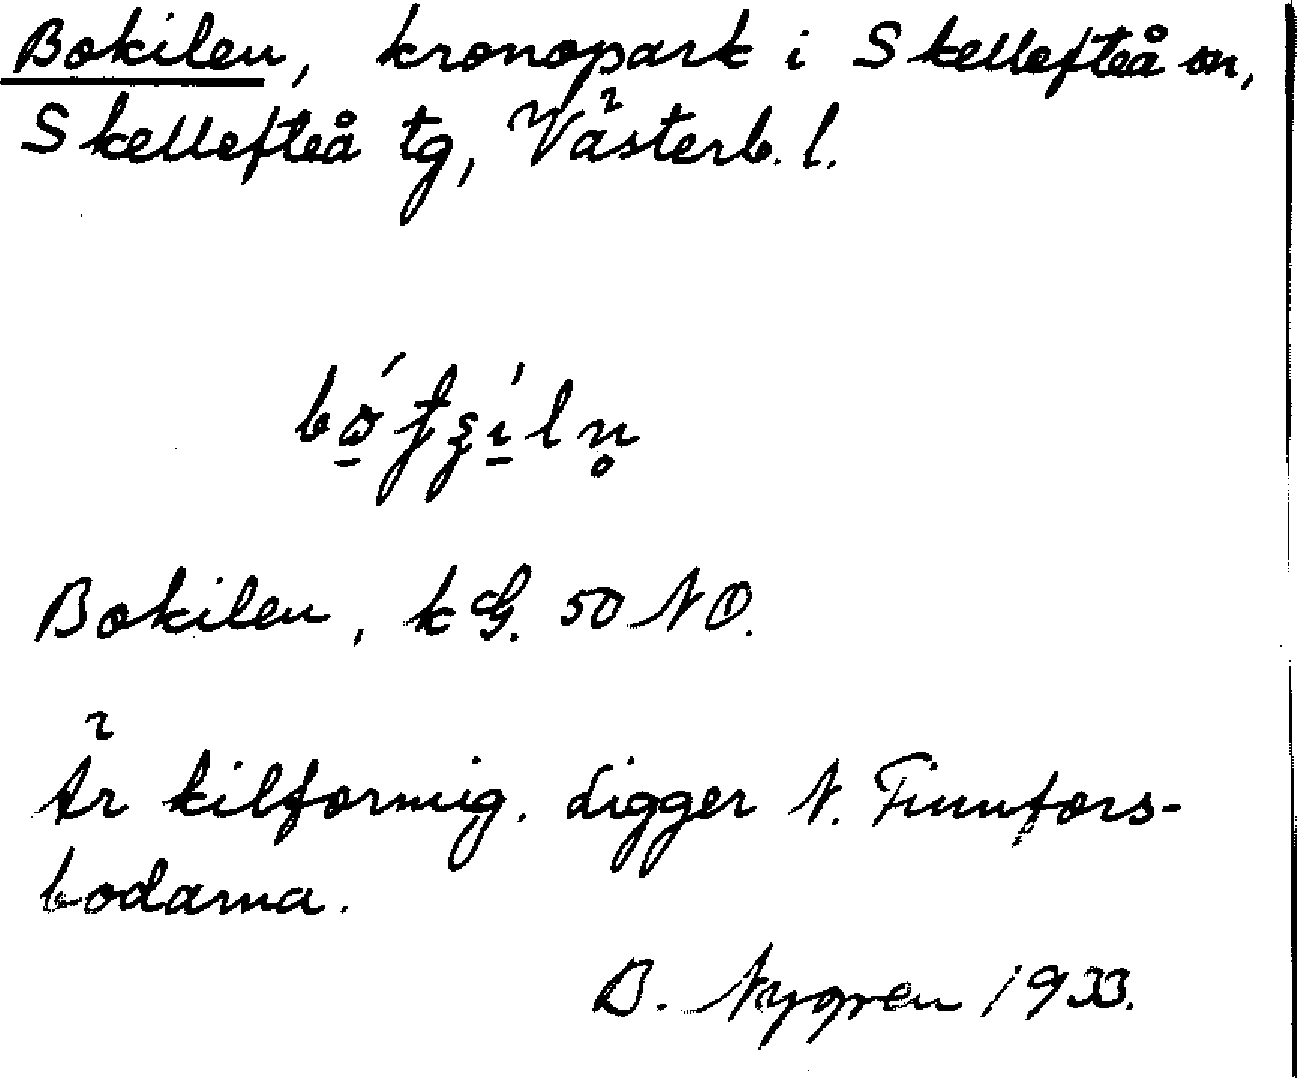 Bokilen, kronopark i Skellefteå sn,
Skellefteå tg, Västerb. l.
Bokilen, k G. 50 NO.
Är kilformig. Ligger N. Finnfors-
bodarna.
B. Nygren 1933.